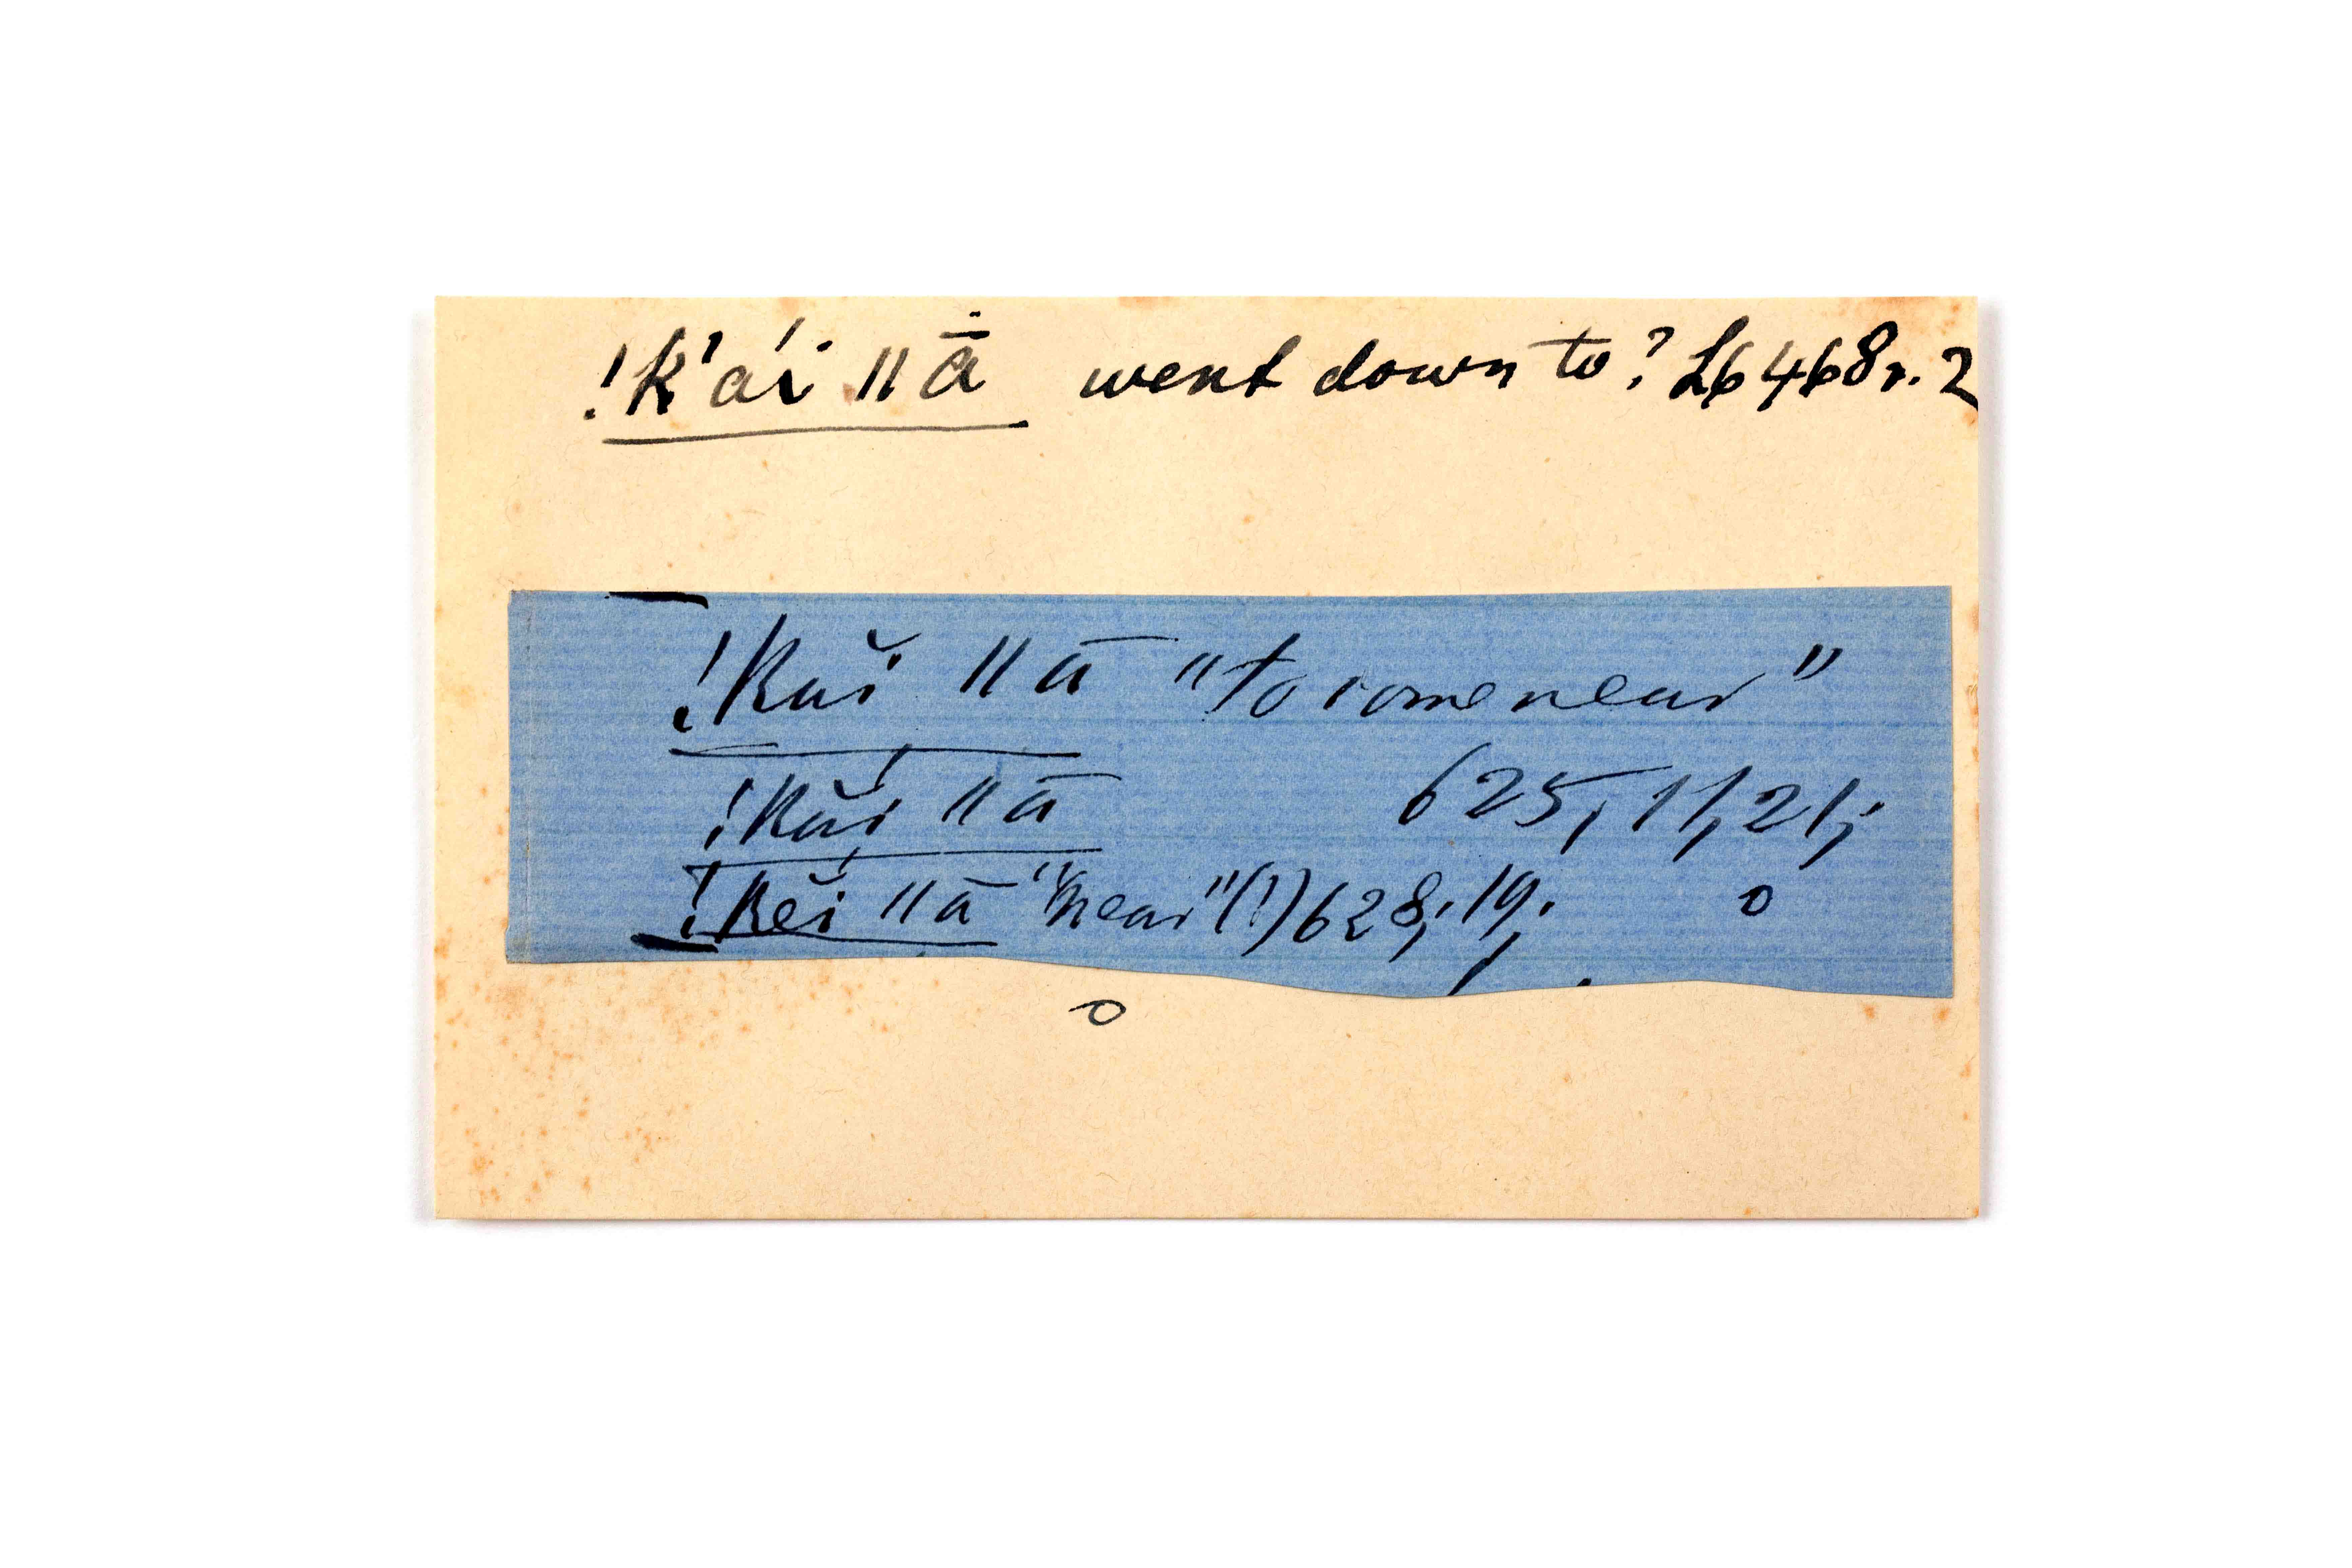 !k'aí ǁā̈ went down to? L6468r. 2
!kaĭ ǁā "to come near"
!kăi ǁā 625, 11, 21;
!kĕi ǁā "near"(!) 628, 19,
o
o